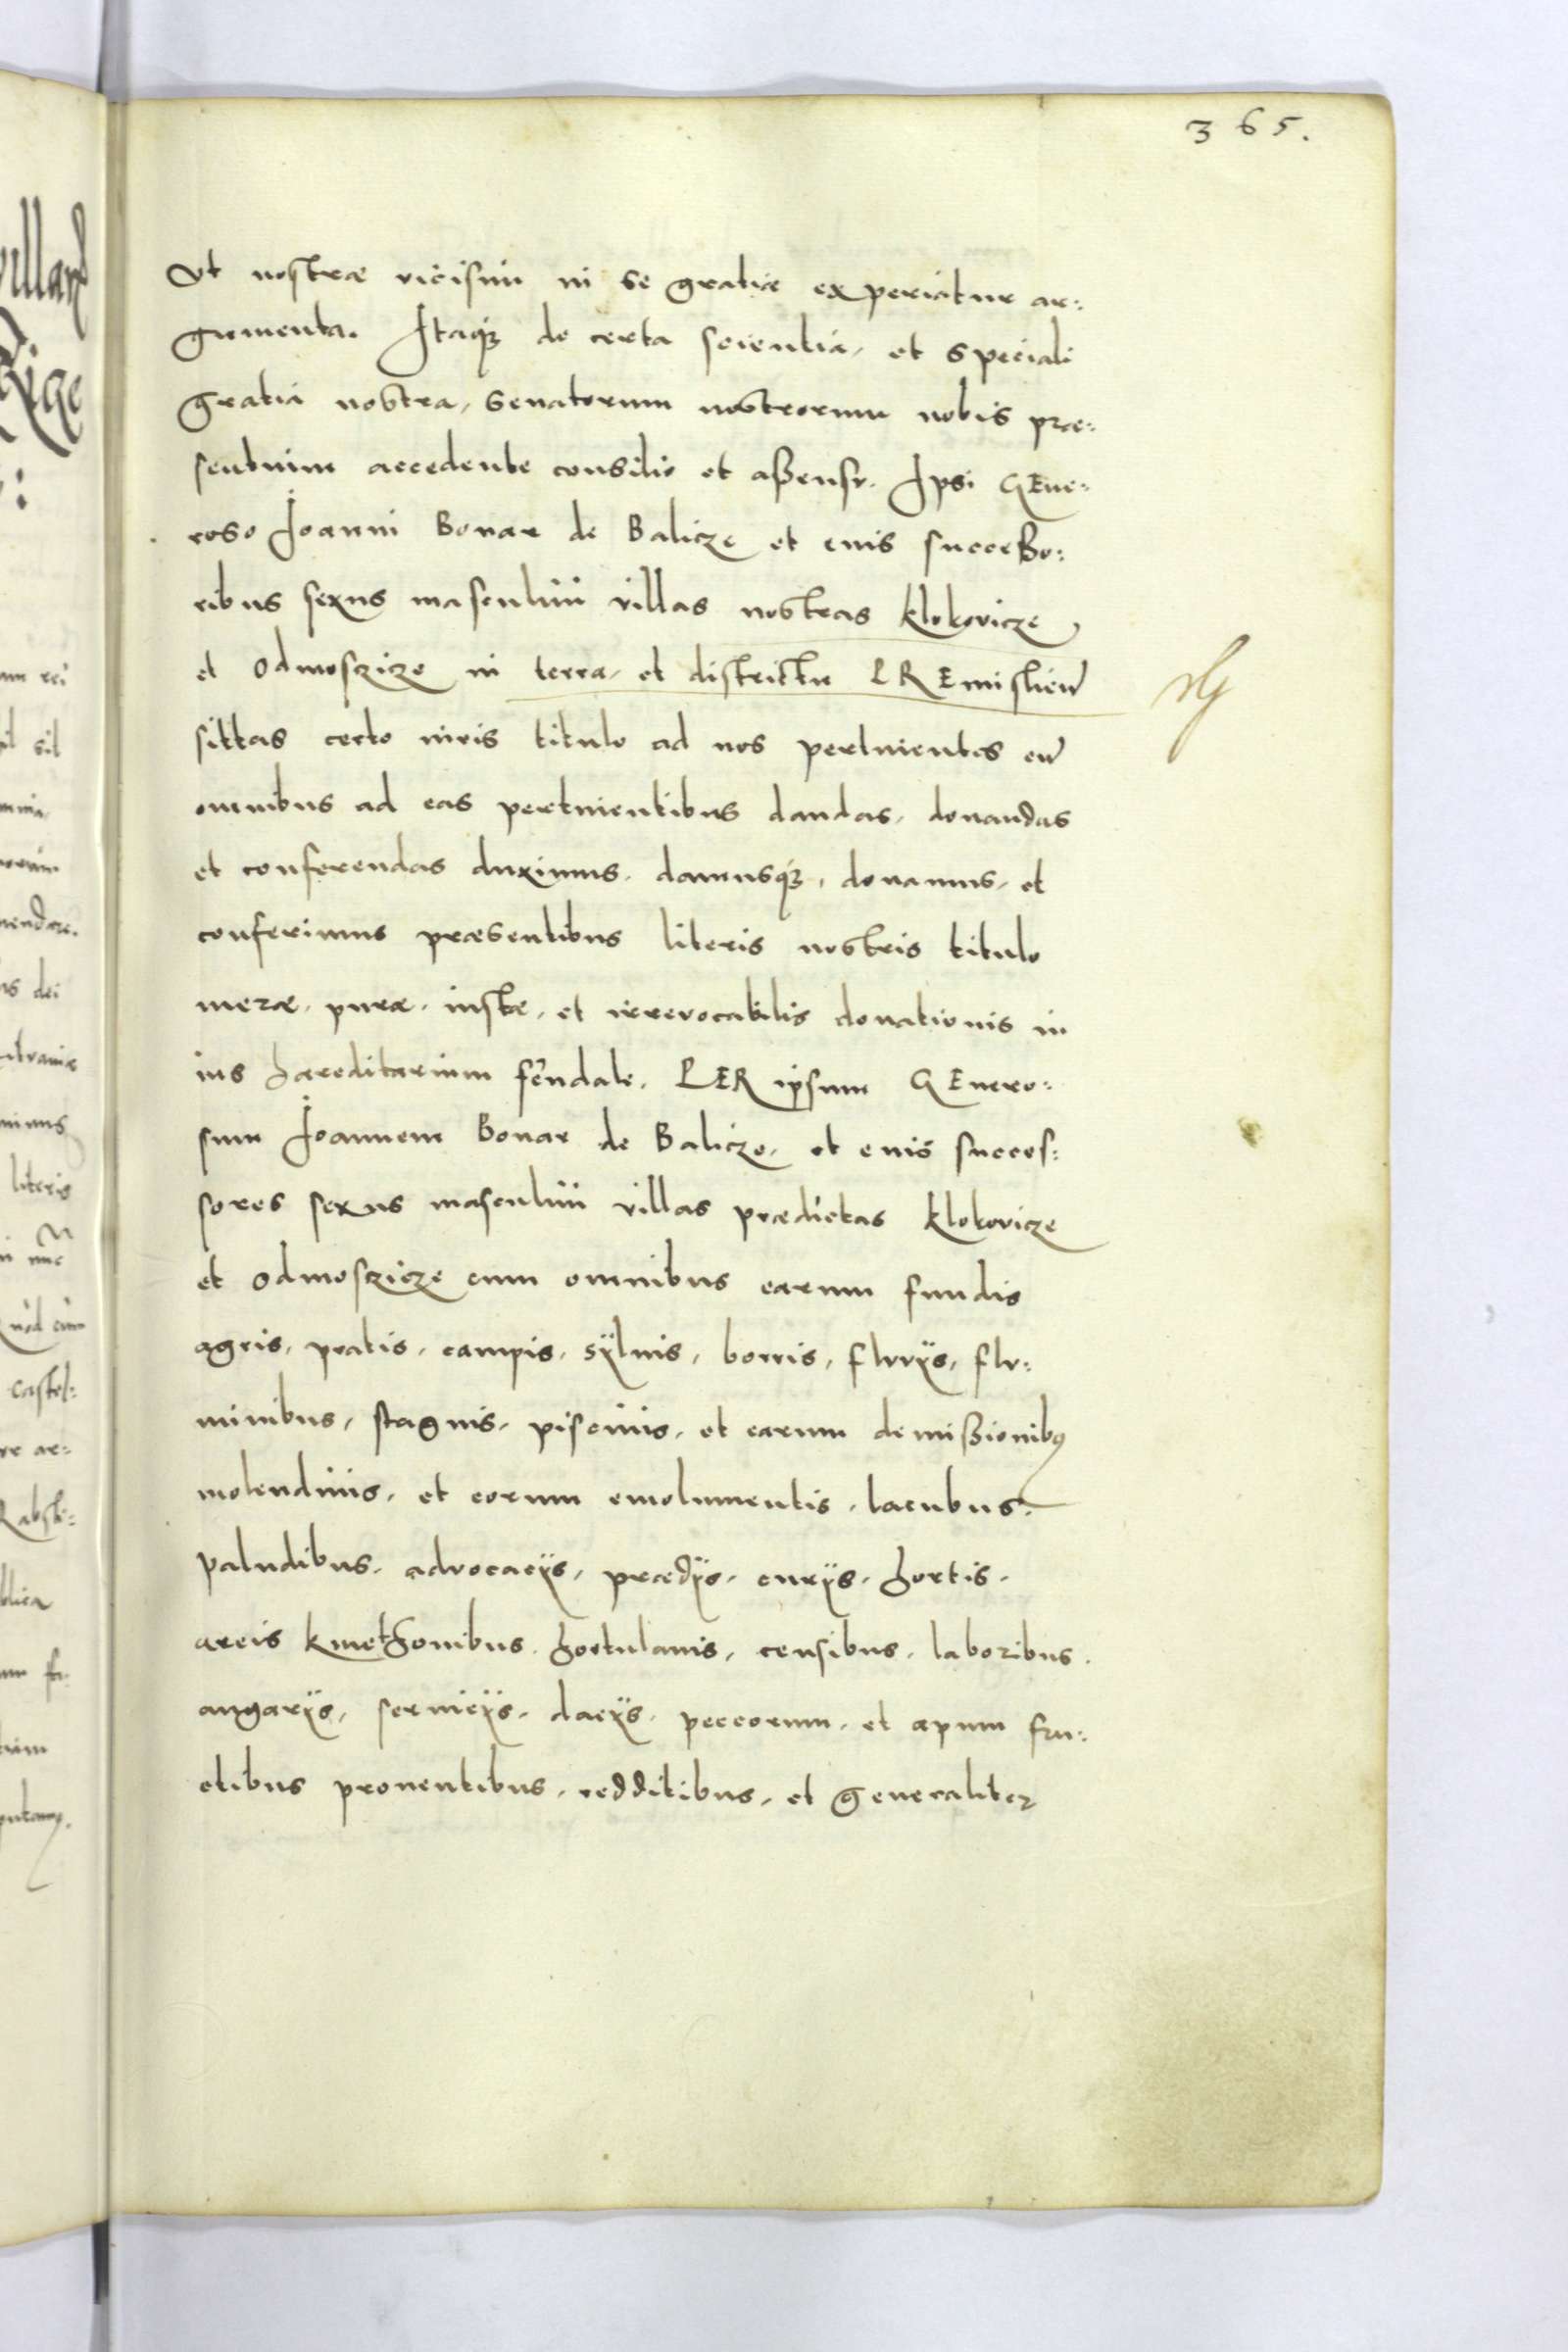 365.
Vt nostræ vicisim in se gratiæ experiatur ar:
gumenta. Itaq₃ de certa scientia, et speciali
gratia nostra, senatorum nostrorum nobis præ:
sentium accedente consilio et aßensu. Ipsi GEne:
roso Joanni Bonar de Balicze et eius succeßo:
ribus sexus masculini villas nostras Klokovicze
et Odmosczicze in terra, et districtu PREmislien̄
sittas certo iuris titulo ad nos pertinientes cu̅
omnibus ad eas pertinientibus dandas, donandas
et conferendas duximus, damusq₃, donamus, et
conferimus præsentibus literis nostris titulo
meræ, puræ, iustæ, et irrevocabilis donationis in
ius hæreditarium feudale. PER ipsum GEnero:
sum Joannem Bonar de Balicze, et euis succes:
sores sexus masculini villas prædictas Klokovicze
et Odmosczicze cum omnibus earum fundis
agris, pratis, campis, sÿluis, borris, fluvÿs, flu:
minibus, stagnis, piscinis, et earum demißionibꝫ
molendinis, et eorum emolumentis, lacubus,
paludibus, advocacÿs, prædÿs, curÿs, hortis,
areis kmethonibus, hortulanis, censibus, laboribus,
angarÿs, seruicÿs, dacÿs, peccorum, et apum fru:
ctibus prouentibus, redditibus, et generaliter